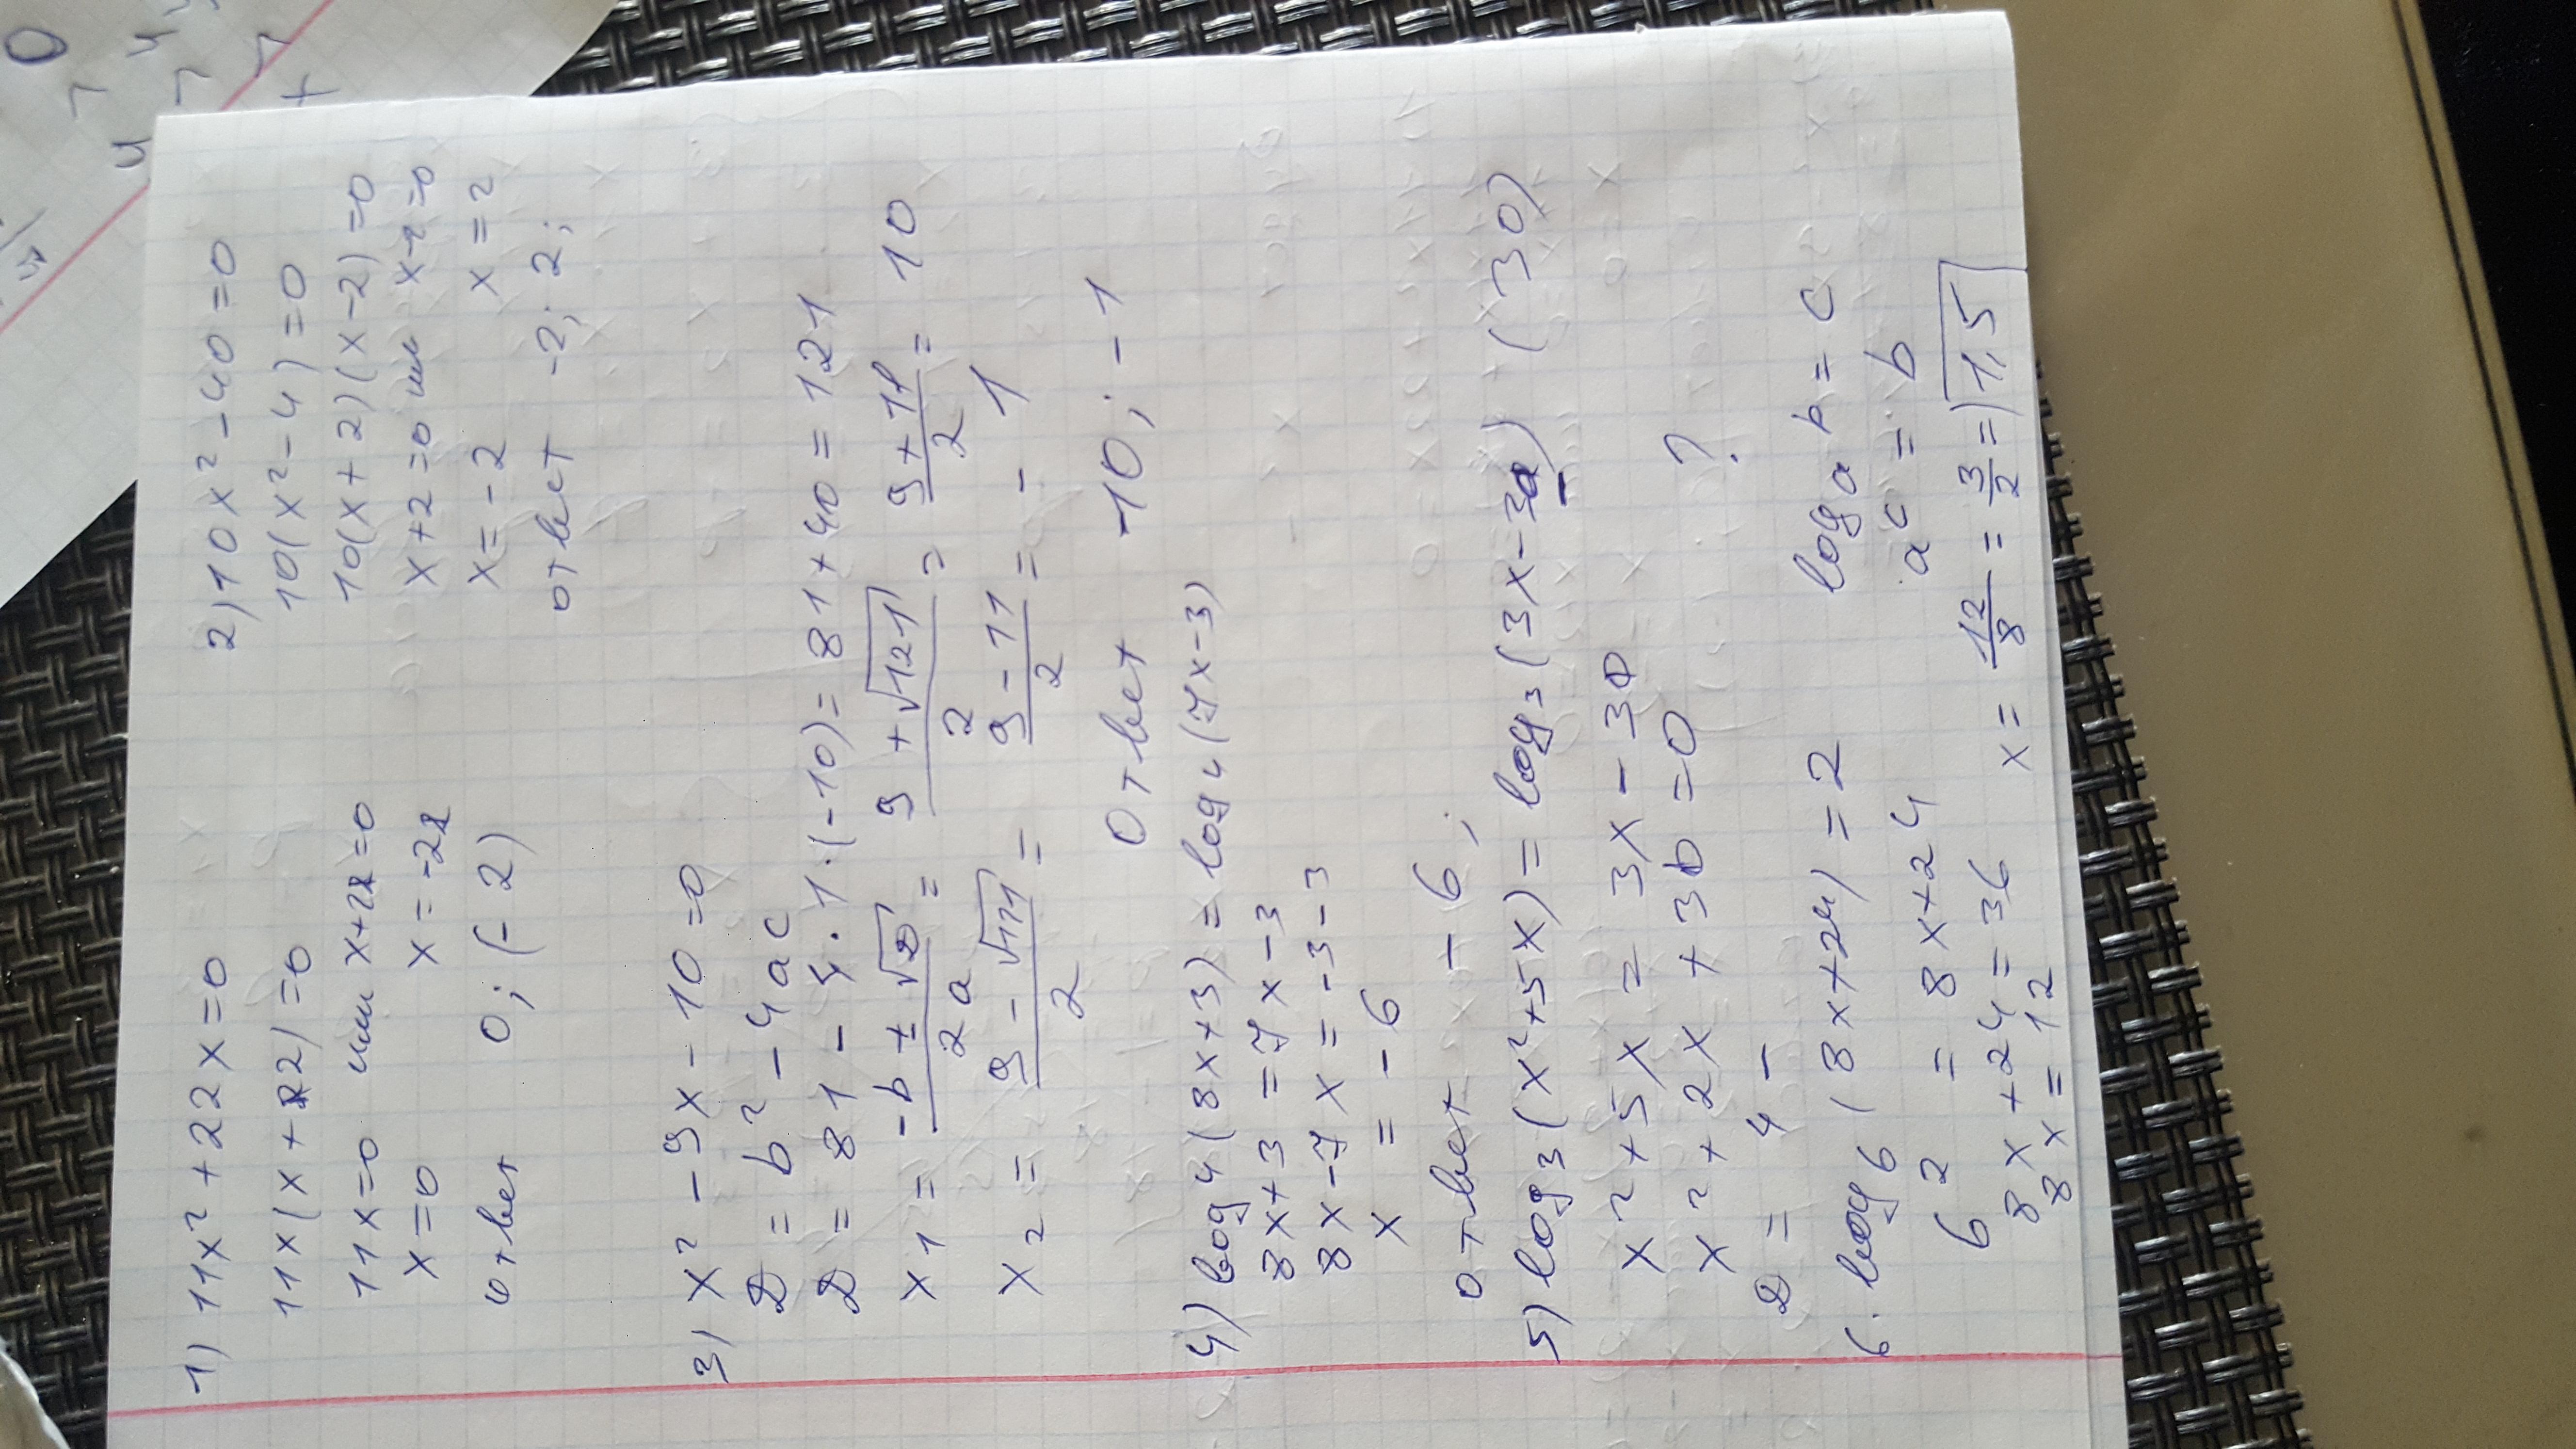 1) 11x² + 22x = 0
11x(x+2) = 0
11x=0 или x+2=0
x=0 x=-2
ответ 0; (-2)
2) 10x² - 40 = 0
10(x² - 4) = 0
10(x+2)(x-2) = 0
x+2=0 или x-2=0
x=-2 x=2
ответ -2; 2;
3) x² - 9x - 10 = 0
D = b² - 4ac
D = 81 - 4·1·(-10) = 81 + 40 = 121
x₁ = (-b ± √D)/2a = (9 + √121)/2 = (9 + 11)/2 = 10
x₂ = (9 - √121)/2 = (9 - 11)/2 = - 1
Ответ -10; -1
4) log₄(8x+3) = log₄(7x-3)
8x+3 = 7x-3
8x-7x = -3-3
x = -6
ответ -6;
5) log₃(x²+5x) = log₃(3x-3a) (30)
x²+5x = 3x - 30
x² + 2x + 30 = 0
D = 4 - ?
6. log₆(8x+24) = 2
6² = 8x+24
8x+24 = 36
8x = 12
logₐ b = c
aᶜ = b
x = 12/8 = 3/2 = 1,5